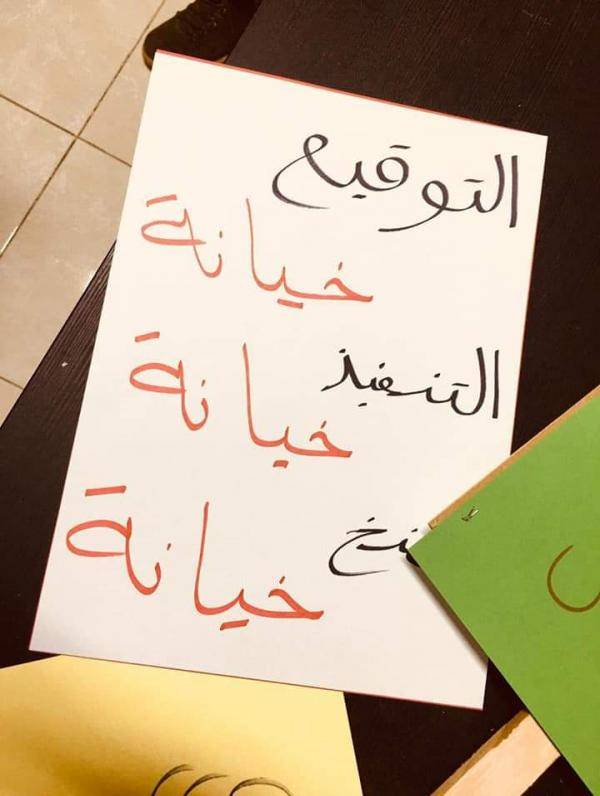 التوقيع
خيانة
التنفيذ
خيانة
خيانة